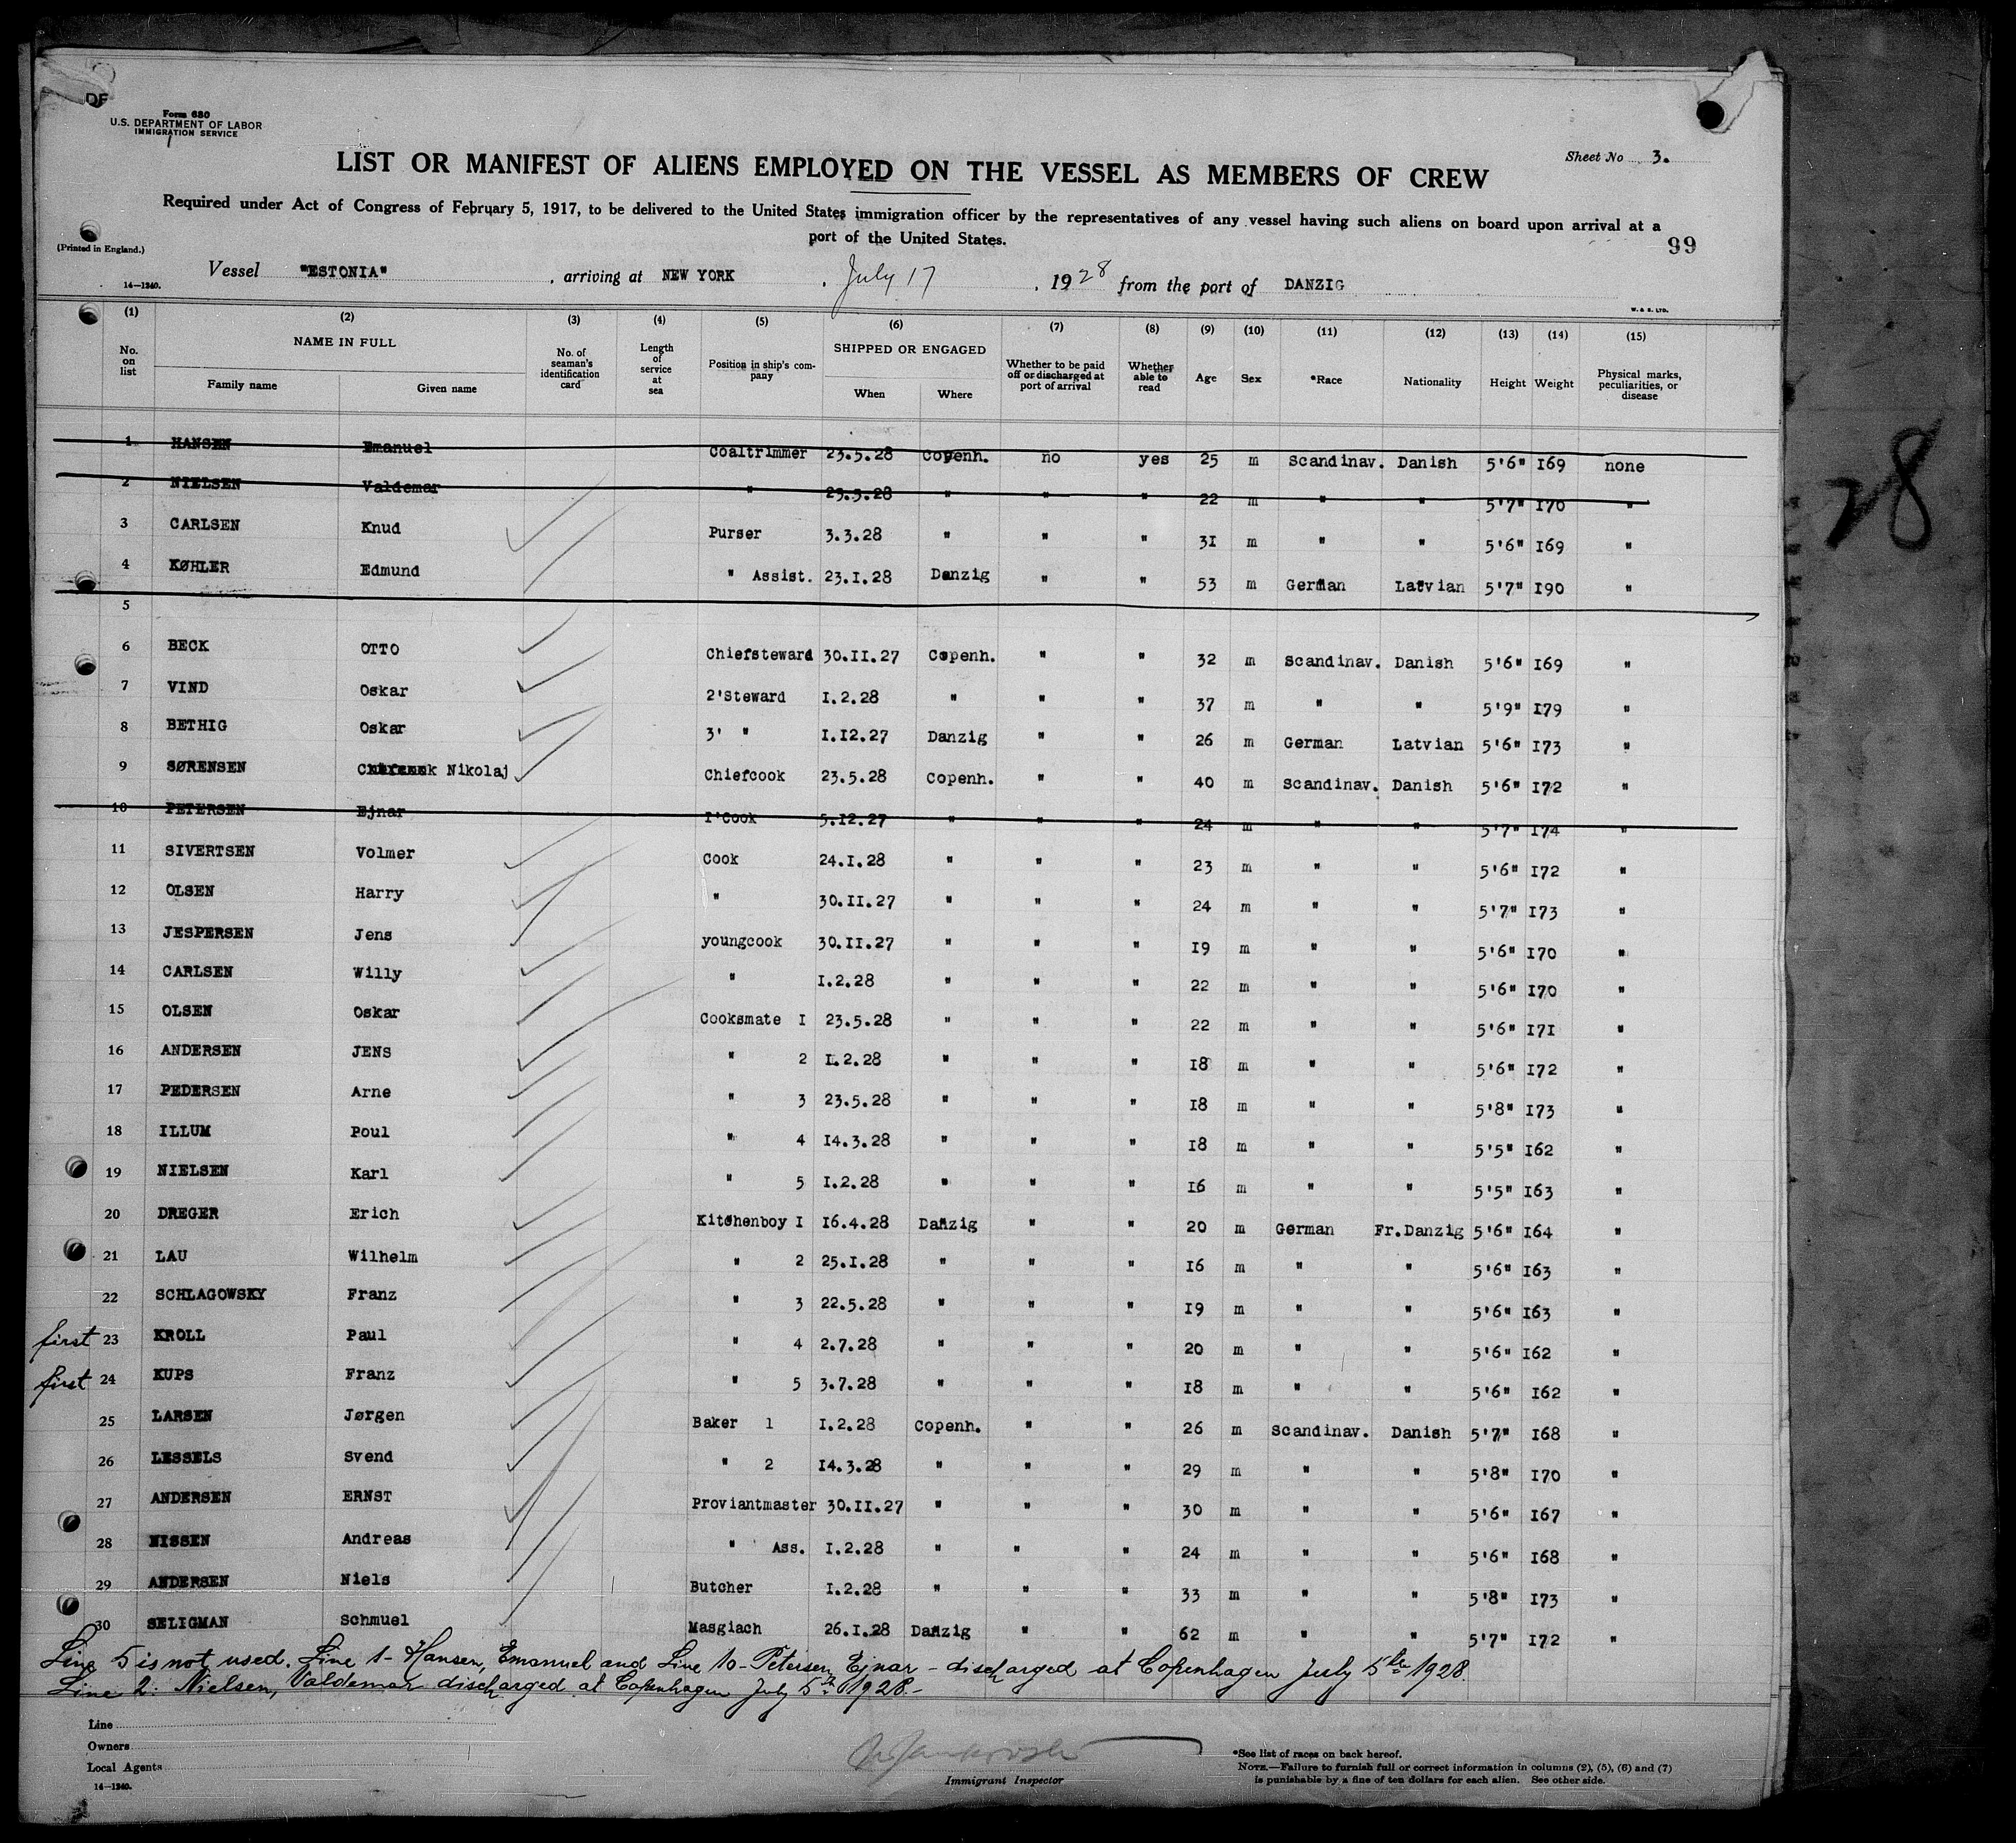 DE
Form 680
U.S. DEPARTMENT OF LABOR
IMMIGRATION SERVICE
Sheet No 3.
LIST OR MANIFEST OF ALIENS EMPLOYED ON THE VESSEL AS MEMBERS OF CREW
Required under Act of Congress of February 5, 1917, to be delivered to the United States immigration officer by the representatives of any vessel having such aliens on board upon arrival at a
port of the United States.
99
(Printed in England.)
Vessel "ESTONIA", arriving at NEW YORK, July 17, 1928 from the port of DANZIG
14—1240.
W. & S. LTD.
(1) (2) (3) (4) (5) (6) (7) (8) (9) (10) (11) (12) (13) (14) (15)
No. on list NAME IN FULL Family name Given name No. of seaman's identification card Length of service at sea Position in ship's company SHIPPED OR ENGAGED When Where Whether to be paid off or discharged at port of arrival Whether able to read Age Sex *Race Nationality Height Weight Physical marks, peculiarities, or disease
1 HANSEN Emanuel Coaltrimmer 23.5.28 Copenh. no yes 25 m Scandinav. Danish 5'6" I69 none
2 NIELSEN Valdemar " 23.5.28 " " " 22 m " " 5'7" I70 "
3 CARLSEN Knud Purser 3.3.28 " " " 3I m " " 5'6" I69 "
4 KØHLER Edmund " Assist. 23.I.28 Danzig " " 53 m German Latvian 5'7" I90 "
5
6 BECK OTTO Chiefsteward 30.II.27 Copenh. " " 32 m Scandinav. Danish 5'6" I69 "
7 VIND Oskar 2'Steward I.2.28 " " " 37 m " " 5'9" I79 "
8 BETHIG Oskar 3' " I.I2.27 Danzig " " 26 m German Latvian 5'6" I73 "
9 SØRENSEN Nikolaj Chiefcook 23.5.28 Copenh. " " 40 m Scandinav. Danish 5'6" I72 "
10 PETERSEN Ejnar I'Cook 5.I2.27 " " " 24 m " " 5'7" I74 "
11 SIVERTSEN Volmer Cook 24.I.28 " " " 23 m " " 5'6" I72 "
12 OLSEN Harry " 30.II.27 " " " 24 m " " 5'7" I73 "
13 JESPERSEN Jens youngcook 30.II.27 " " " I9 m " " 5'6" I70 "
14 CARLSEN Willy " I.2.28 " " " 22 m " " 5'6" I70 "
15 OLSEN Oskar Cooksmate I 23.5.28 " " " 22 m " " 5'6" I7I "
16 ANDERSEN JENS " 2 I.2.28 " " " I8 m " " 5'6" I72 "
17 PEDERSEN Arne " 3 23.5.28 " " " I8 m " " 5'8" I73 "
18 ILLUM Poul " 4 I4.3.28 " " " I8 m " " 5'5" I62 "
19 NIELSEN Karl " 5 I.2.28 " " " I6 m " " 5'5" I63 "
20 DREGER Erich Kitchenboy I I6.4.28 Danzig " " 20 m German Fr.Danzig 5'6" I64 "
21 LAU Wilhelm " 2 25.I.28 " " " I6 m " " 5'6" I63 "
22 SCHLAGOWSKY Franz " 3 22.5.28 " " " I9 m " " 5'6" I63 "
first 23 KROLL Paul " 4 2.7.28 " " " 20 m " " 5'6" I62 "
first 24 KUPS Franz " 5 3.7.28 " " " I8 m " " 5'6" I62 "
25 LARSEN Jørgen Baker 1 I.2.28 Copenh. " " 26 m Scandinav. Danish 5'7" I68 "
26 LESSELS Svend " 2 I4.3.28 " " " 29 m " " 5'8" I70 "
27 ANDERSEN ERNST Proviantmaster 30.II.27 " " " 30 m " " 5'6" I67 "
28 NISSEN Andreas " Ass. I.2.28 " " " 24 m " " 5'6" I68 "
29 ANDERSEN Niels Butcher I.2.28 " " " 33 m " " 5'8" I73 "
30 SELIGMAN Schmuel Masgiach 26.I.28 Danzig " " 62 m " " 5'7" I72 "
Line 5 is not used. Line 1 - Hansen, Emanuel and Line 10 - Petersen, Ejnar - discharged at Copenhagen July 5th 1928.
Line 2: Nielsen, Valdemar discharged at Copenhagen July 5th 1928.-
Line
Owners
Local Agents
14—1240.
Immigrant Inspector
*See list of races on back hereof.
NOTE.—Failure to furnish full or correct information in columns (2), (5), (6) and (7)
is punishable by a fine of ten dollars for each alien. See other side.
28